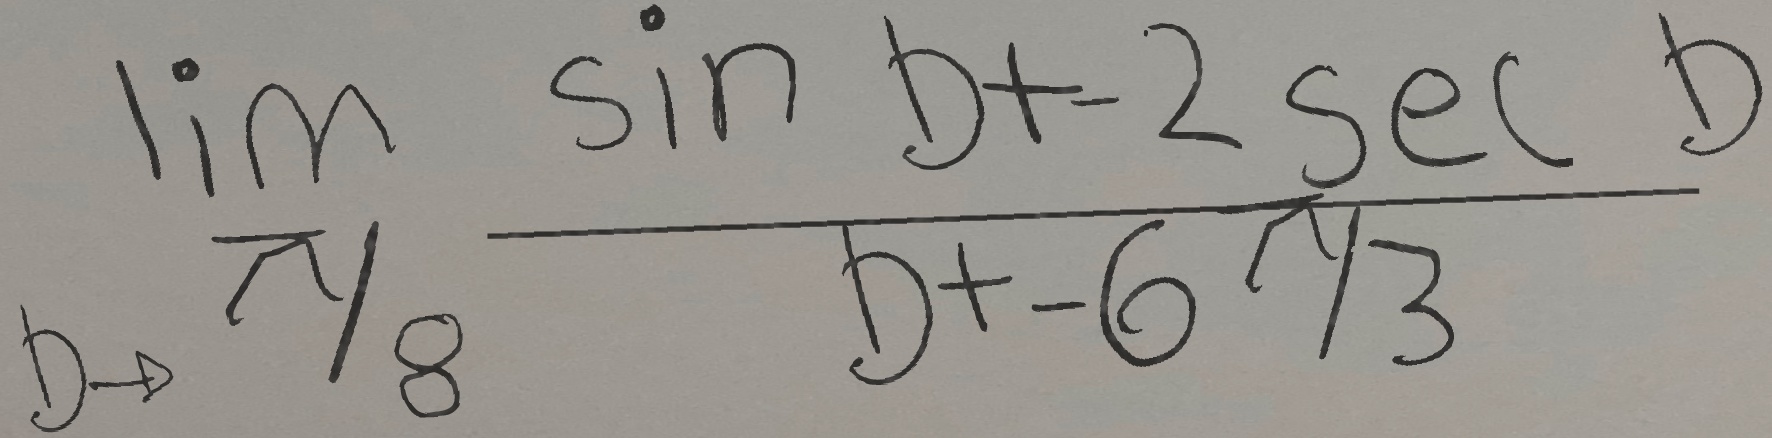 lim_{b→π/8} \frac{sin b+-2 sec b}{b+-6π/3}